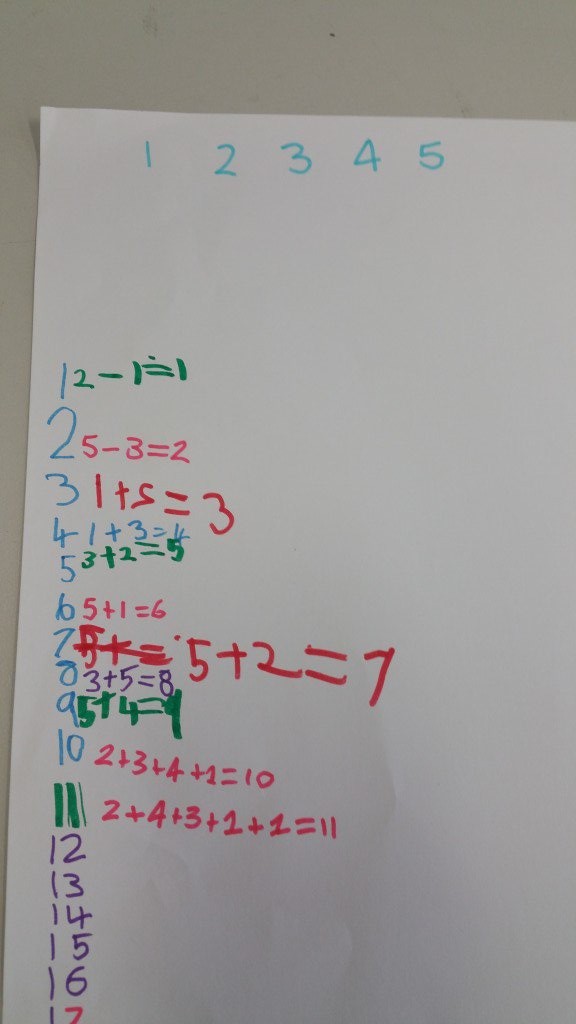 1 2 3 4 5
1 2-1=1
2 5-3=2
3 1+5=3
4 1+3=4
5 3+2=5
6 5+1=6
7 5+= 5+2=7
8 3+5=8
9 5+4=9
10 2+3+4+1=10
11 2+4+3+1+1=11
12
13
14
15
16
17